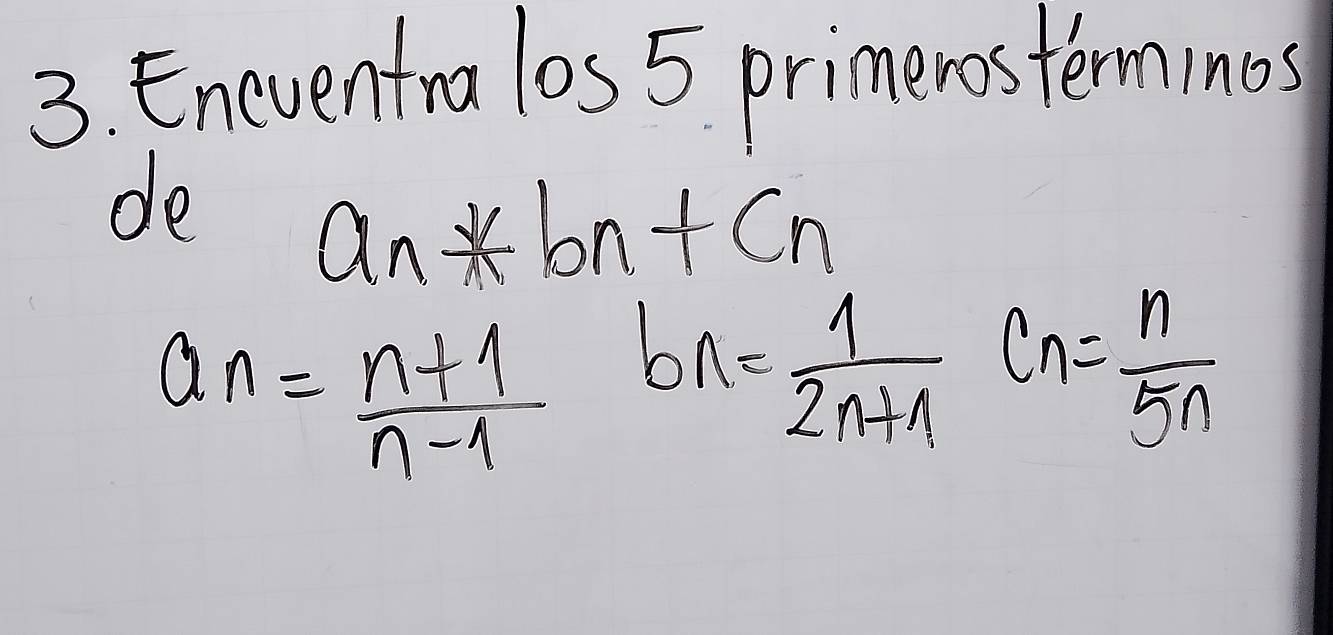 3. Encuentra los 5 primeros términos
de an * bn + Cn
an = n+1/n-1 bn = 1/2n+1 Cn = n/5n